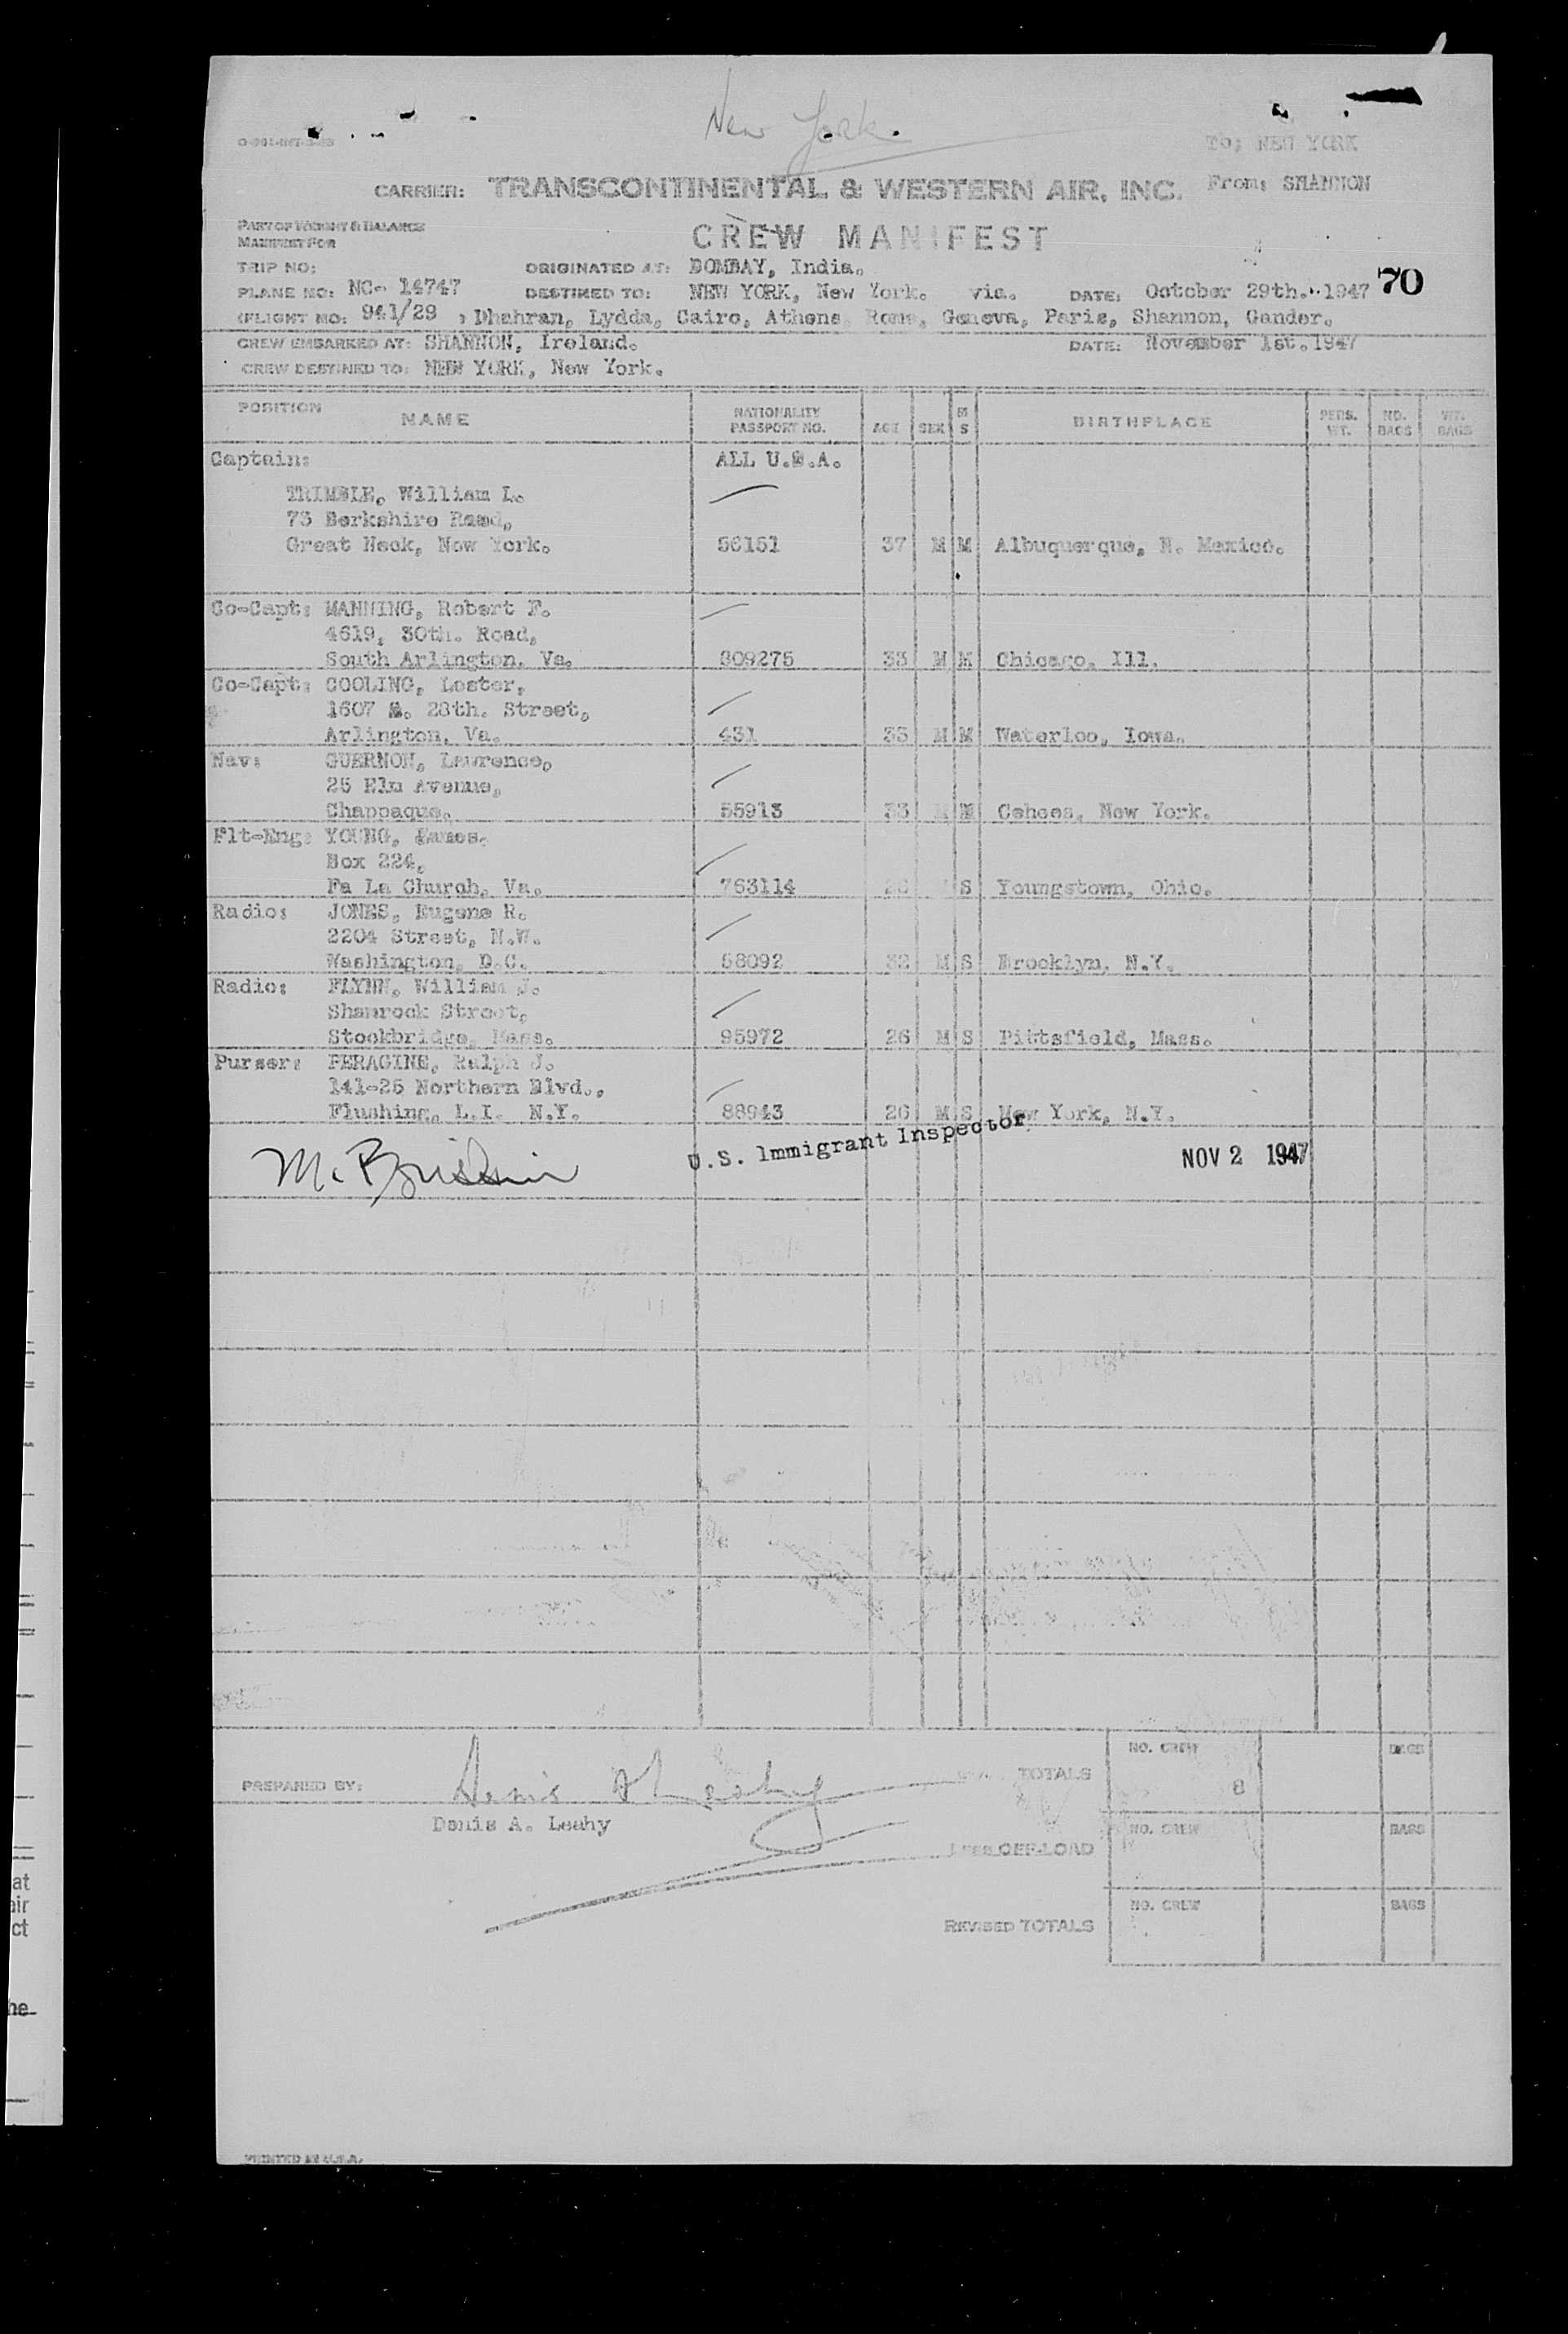 New York.
To: NEW YORK
CARRIER: TRANSCONTINENTAL & WESTERN AIR, INC. From: SHANNON
PART OF WEIGHT & BALANCE
MANIFEST FOR
CREW MANIFEST
TRIP NO: ORIGINATED AT: BOMBAY, India.
PLANE NO: NC- 14747 DESTINED TO: NEW YORK, New York. via. DATE: October 29th. 1947 70
(FLIGHT NO: 941/29 , Dhahran, Lydda, Cairo, Athens, Rome, Geneva, Paris, Shannon, Gander.
CREW EMBARKED AT: SHANNON, Ireland. DATE: November 1st. 1947
CREW DESTINED TO: NEW YORK, New York.
POSITION NAME NATIONALITY PASSPORT NO. AGE SEX M S BIRTHPLACE PERS. WT. NO. BAGS WT. BAGS
Captain: ALL U.S.A.
TRIMBLE, William L.
73 Berkshire Road,
Great Neck, New York. 56151 37 M M Albuquerque, N. Mexico.
Co-Capt: MANNING, Robert F.
4619, 30th. Road,
South Arlington, Va. 809275 33 M M Chicago, Ill.
Co-Capt: COOLING, Lester,
1607 28th. Street,
Arlington, Va. 431 33 M M Waterloo, Iowa.
Nav: GUERNON, Lawrence,
25 Elm Avenue,
Chappaqua. 55913 33 M M Cohoes, New York.
Flt-Eng: YOUNG, James.
Box 224,
Fa La Church, Va. 763114 S Youngstown, Ohio.
Radio: JONES, Eugene R.
2204 Street, N.W.
Washington, D.C. 58092 32 M S Brooklyn, N.Y.
Radio: FLYNN, William J.
Shamrock Street,
Stockbridge, Mass. 95972 26 M S Pittsfield, Mass.
Purser: FERAGINE, Ralph J.
141-25 Northern Blvd.,
Flushing, L.I. N.Y. 88943 26 M S New York, N.Y.
U.S. Immigrant Inspector NOV 2 1947
NO. CREW BAGS
PREPARED BY: Denis A Leahy TOTALS 8
Denis A. Leahy
NO. CREW BAGS
OFF-LOAD
NO. CREW BAGS
REVISED TOTALS
PRINTED IN U.S.A.
at
air
ct
he